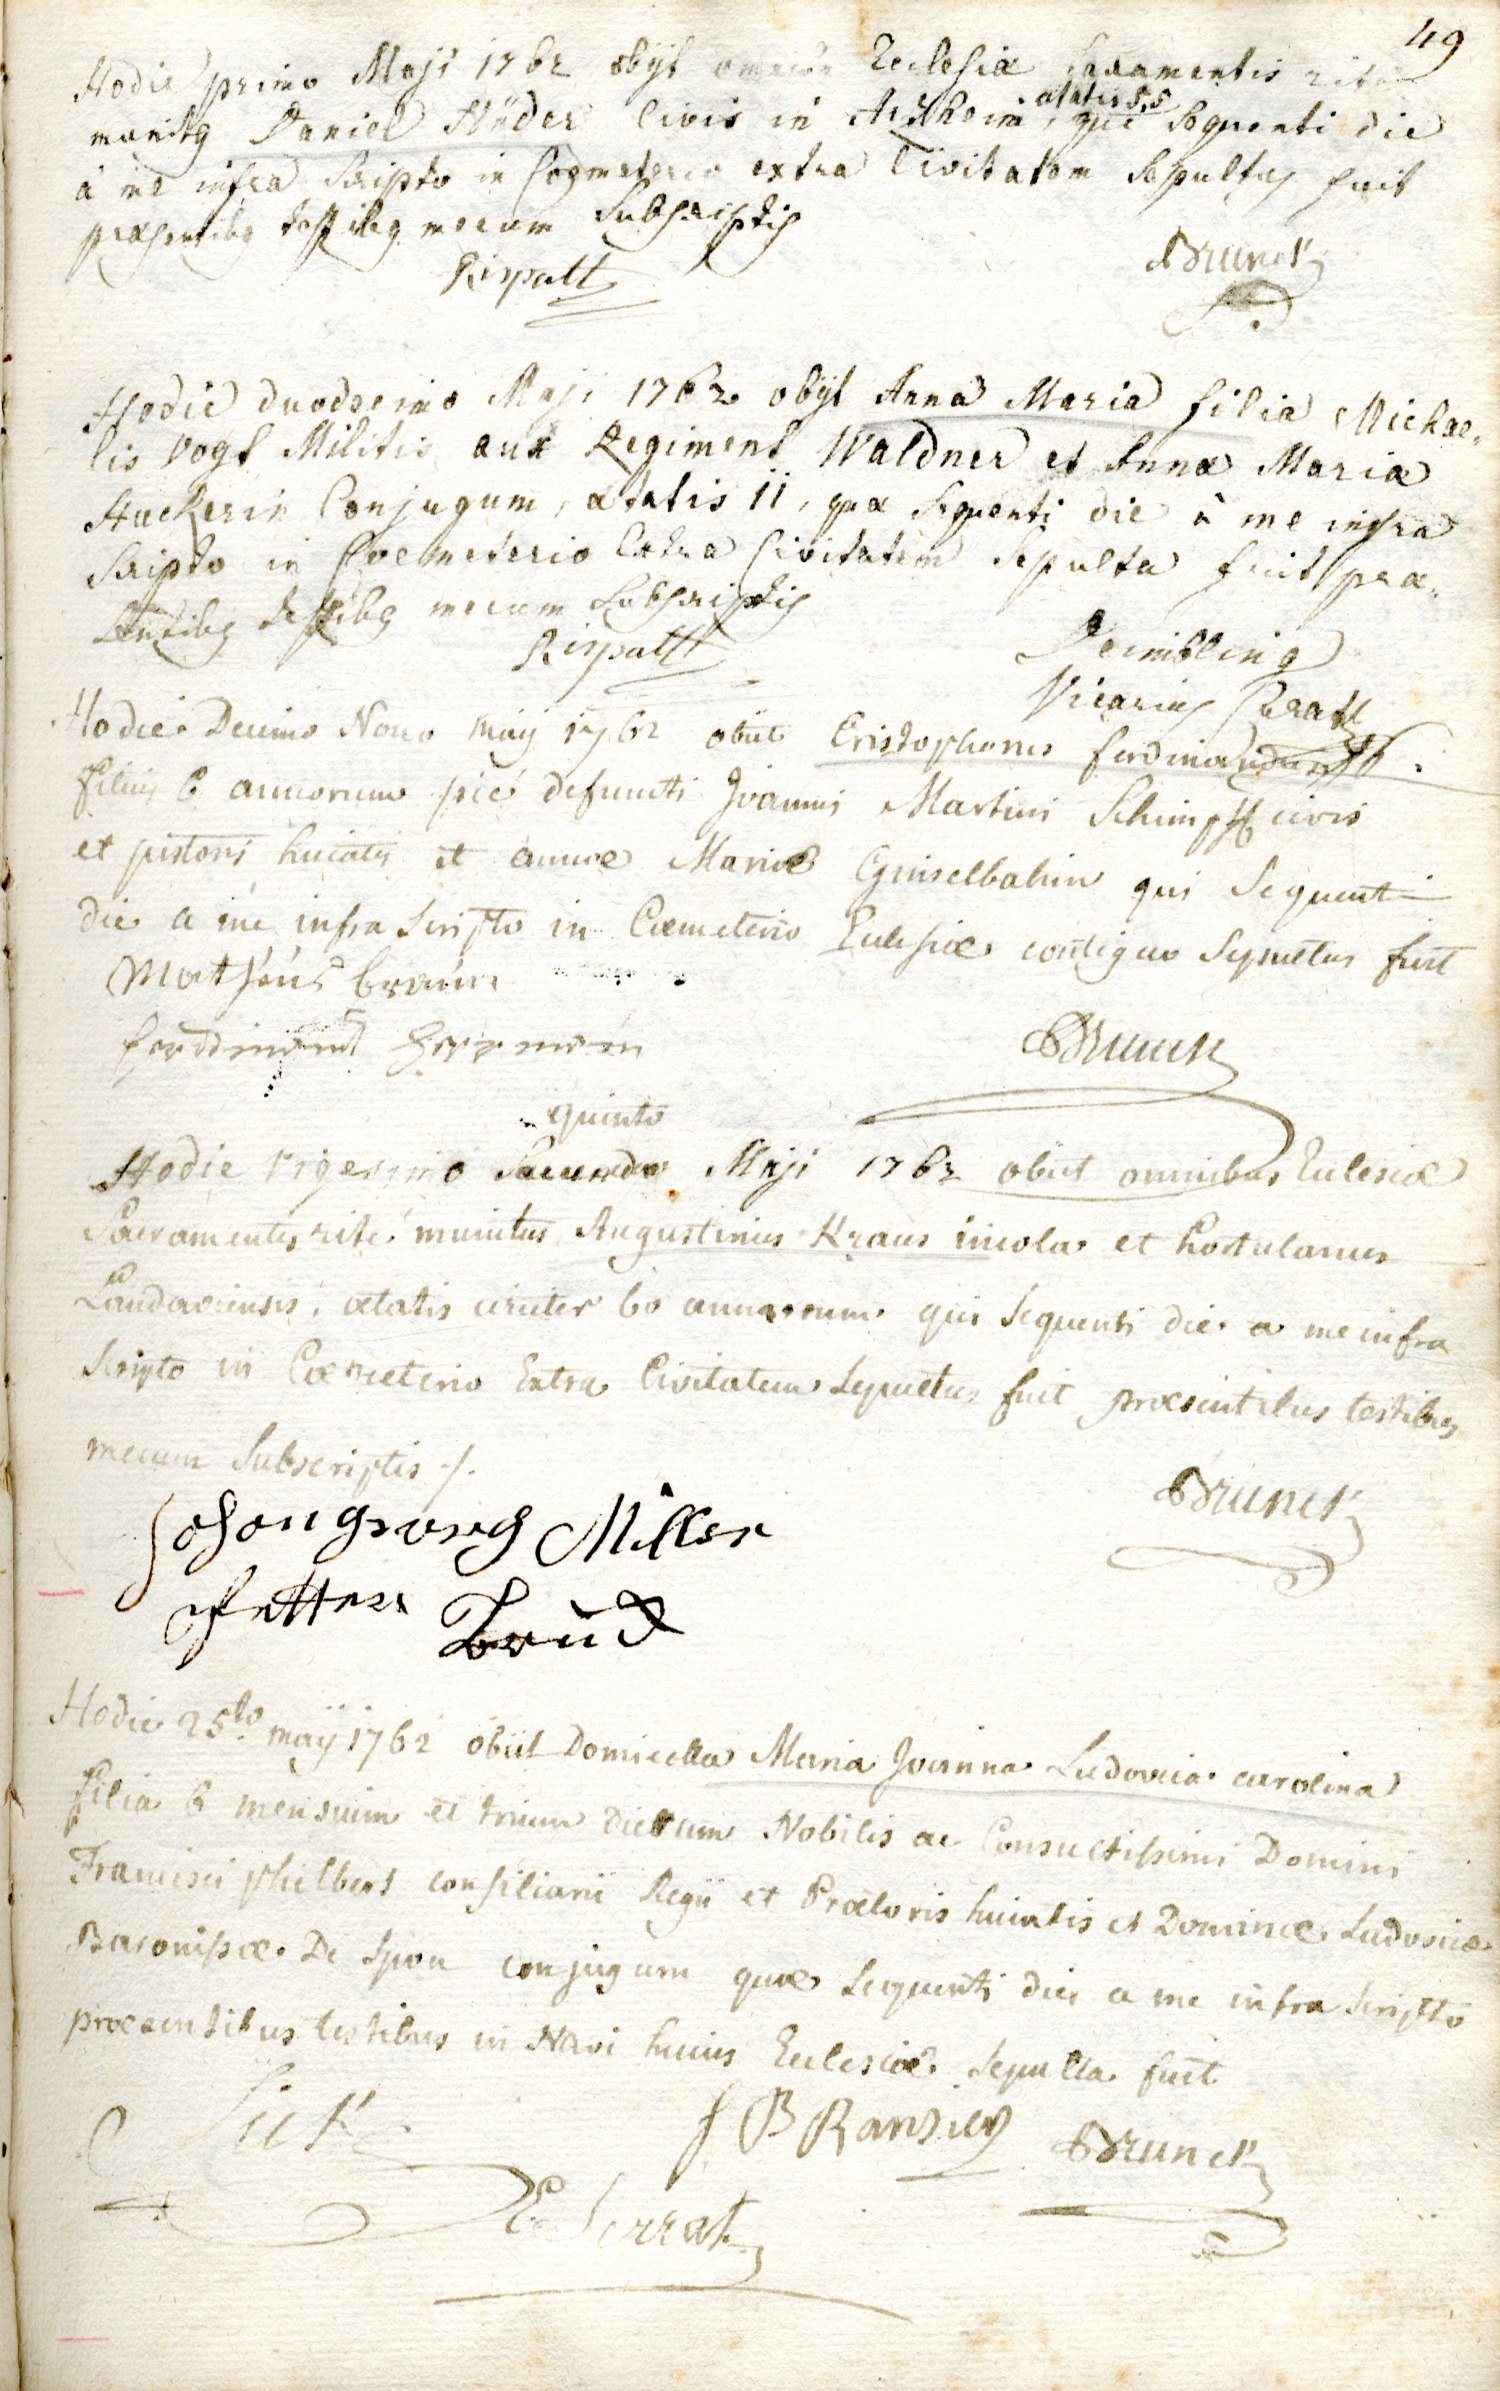 49
Hodie primo Maji 1762 obÿt omnibg Ecclesiæ Sacramentis rite
ætatis 55
munitg Daniel Stüder Civis in Arzheim, qui Sequenti die
à me infra Scripto in Coemeterio extra Civitatem Sepultus fuit
præsentibg testibg mecum Subscriptis
Rispatt
Brunck
Hodie duodecimo Maji 1762 obÿt Anna Maria filia Michae„
lis Vogt Militis aux Regiment Waldner et Annæ Maria
Huckerin Conjugum, ætatis 11, quæ Sequenti die à me infra
Scripto in Coemeterio Extra Civitatem Sepulta fuit præ„
sentibg testibg mecum Subscriptis
Rispatt
Deimbling
Vicarius Curatg
Hodie Decimo Nono maij 1762 obiit Cristophorus ferdinandus
filius 6 annorum pié defuncti Joannis Martini Schimpff civis
et pistoris huiatis et annæ Mariæ Geiselbahin qui Sequenti
die a me infra Scripto in Cœmeterio Ecclesiæ contiguo Sepultus fuit
Mathéus braun
ferdinand Herrman
Brunck
quinto
Hodie Vigesimo Secundo Maji 1762 obiit omnibus Eclesiæ
Sacramentis rité munitus Augustinus Kraus incola et hortulanus
Landaviensis, ætatis circiter 60 annorum qui Sequenti die a me infra
Scripto in Cœmeterio Extra Civitatem Sepultus fuit præsentibus testibus
mecum Subscriptis ./.
Johan georg Miller
Petter
Brunck
Hodie 25to maÿ 1762 obiit Domicella Maria Joanna Ludovica carolina
filia 6 mensium et trium dierum Nobilis ac Consultissimi Domini
Francisci philbert consiliarii Regii et Prætoris huiatis et Dominæ Ludovicæ
Baronissæ De Spon conjugum quæ Sequenti die a me infra Scripto
præsentibus testibus in Navi huius Ecclesiæ Sepulta fuit
J B Ranziev
Brunck
Serrat